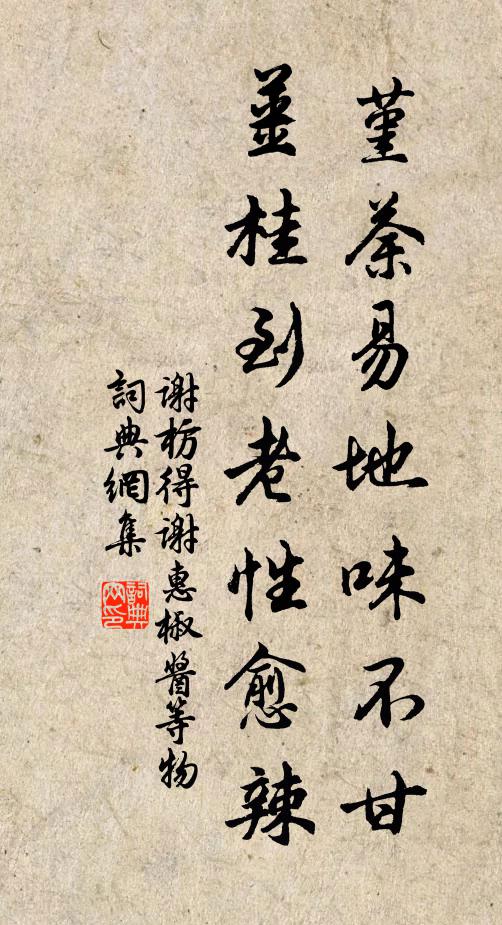 堇荼易地味不甘
薑桂到老性愈辣
谢枋得谢惠椒醬等物
詞典網集
詞典